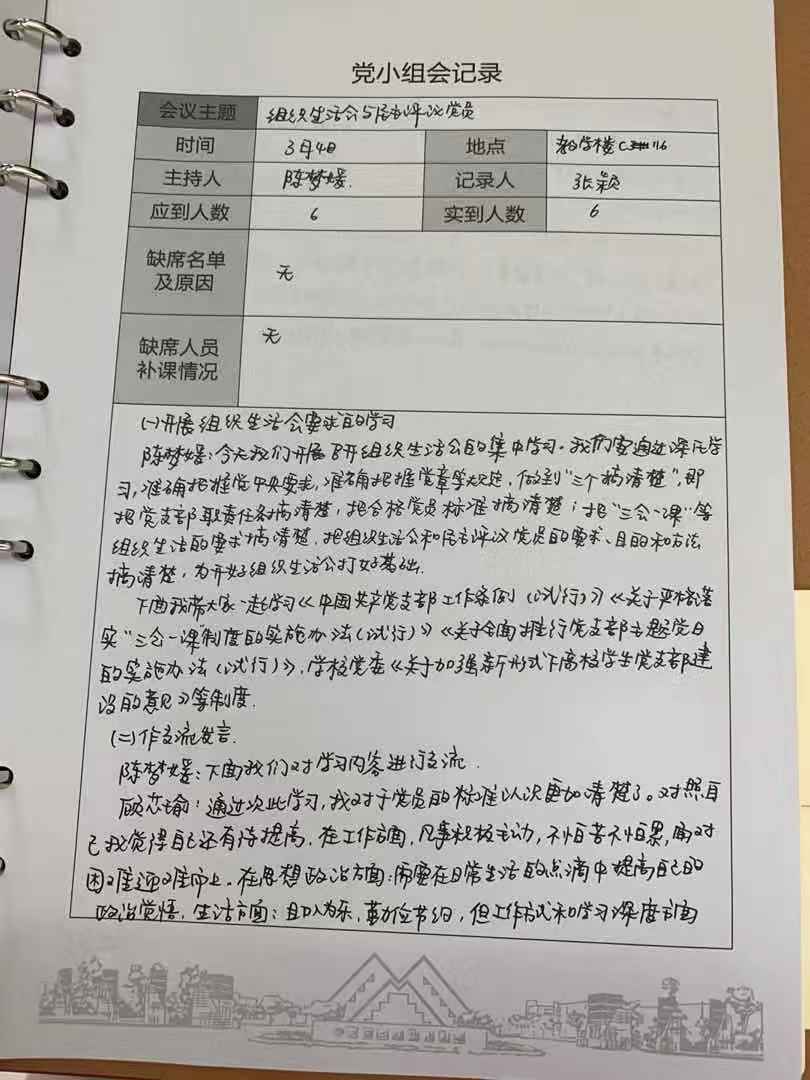 党小组会记录
会议主题 组织生活会与民主评议党员
时间 3月4日 地点 教学楼C
主持人 陈梦媛 记录人 张颖
应到人数 6 实到人数 6
缺席名单
及原因 无
缺席人员
补课情况 无
(一)开展组织生活会要求的学习
陈梦媛:今天我们开展召开组织生活会的集中学习。我们要通过深化学
习,准确把握党中央要求,准确把握党章学规定,做到“三个搞清楚”,即
把党支部职责任务搞清楚,把合格党员标准搞清楚;把“三会一课”等
组织生活的要求搞清楚,把组织生活会和民主评议党员的要求、目的和方法
搞清楚,为开好组织生活会打好基础.
下面我带大家一起学习《中国共产党支部工作条例(试行)》《关于严格落
实“三会一课”制度的实施办法(试行)》《关于全面推行党支部主题党日
的实施办法(试行)》,学校党委《关于加强新形式下高校学生党支部建
设的意见》等制度.
(二)作交流发言.
陈梦媛:下面我们对学习内容进行交流.
顾芯瑜:通过次此学习,我对于党员的标准认识更加清楚了。对照自
己我觉得自己还有待提高,在工作方面,凡事积极主动,不怕苦不怕累,面对
困难迎难而上。在思想政治方面:需要在日常生活的点滴中提高自己的
政治觉悟,生活方面:且以为乐,勤俭节约,但工作方式和学习深度方面